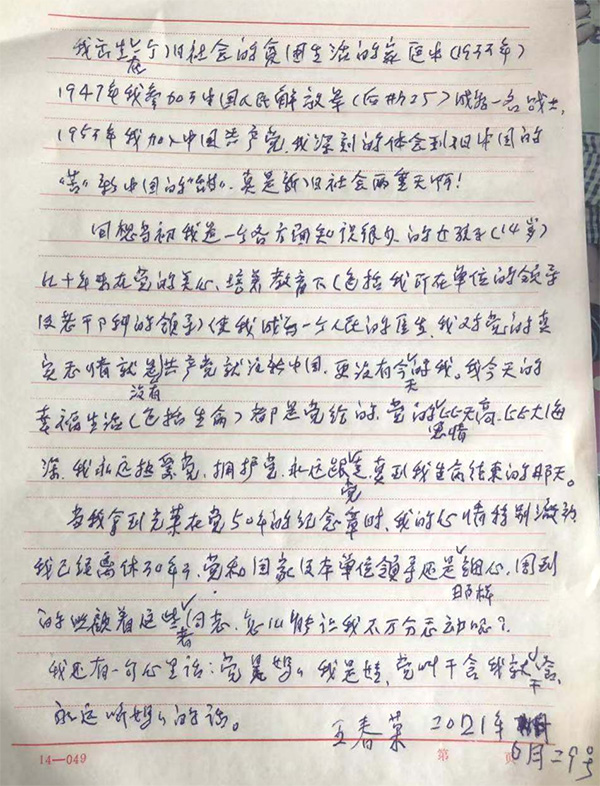 我出生在一个旧社会的贫困生活的家庭中(1933年)
1947年我参加了中国人民解放军(后勤25)成为一名战士,
1953年我加入中国共产党,我深刻的体会到旧中国的
“苦”新中国的“甜”.真是新旧社会两重天啊!
回想当初我是一个各方面知识很少的女孩子(14岁)
几十年来在党的关心、培养教育下(包括我所在单位的领导
及老干部科的领导)使我成为一个人民的医生,我对党的真
实感情就是没有共产党就没有新中国,更没有今天的我。我今天的
幸福生活(包括生命)都是党给的,党的恩情比天高、比大海
深,我永远热爱党,拥护党,永远跟党走,直到我生命结束的那天。
当我拿到光荣在党50年的纪念章时,我的心情特别激动
我已经离休30年了,党和国家及本单位领导还是那样细心,周到
的照顾着这些老同志,怎么能让我不万分感动呢?
我还有一句心里话:党是妈妈我是娃,党叫干啥我就干啥,
永远听妈妈的话。
王春荣 2021年
6月29号
14—049
第 页